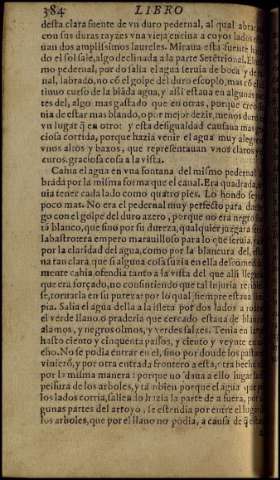 384 LIBRO
desta clara fuente de vn duro pedernal, al qual abra
con sus duras rayzes vna vieja encina a cuyos lados
uan dos amplissimos laureles. Miraua esta fuente
do el sol sale, algo declinada a la parte Setētrional. El
mo pedernal, por do salia el agua seruia de boca y de
nal, labrado, no cō el golpe del duro escoplo, mas cō
tinuo curso de la blāda agua, y assi estaua en algunas
tes del, algo mas gastado que en otras, porque
nia de estar mas blando, o por mejor dezir, menos duro
vn lugar q̃ en otro: y esta desigualdad causaua mas
ciosa corrida, porque hazia venir el agua muy alegre
vnos altos y baxos, que representauan vnos claros y
curos. graciosa cosa a la vista.
Cahia el agua en vna fontana del mismo pedernal
brada por la misma forma que el canal. Era quadrada,
nia tener cada lado como quatro pies. Lo hondo
poco mas. No era el pedernal muy perfecto para
go con el golpe del duro azero, porque no era negro
tā blanco, que sino por su dureza, qualquier juzgara
labastro: era empero marauilloso para lo que seruia,
por la claridad del agua, como por la blancura del,
na tan clara, que si alguna cosa suzia en ella
mente cahia, ofendia tanto a la vista del que alli
que era forçado, no consintiendo que tal injuria
se, tornarla en su pureza: por lo qual siempre estaua
pia. Salia el agua della a la isleta por dos lados a
el verde llano, o praderia que cercado estaua de
alamos, y negros olmos, y verdes salzes. Tenia en
hasta ciento y cinquenta passos, y ciento y veynte en
cho. No se podia entrar en el, sino por donde los
vinierō, y por otra entrada frontero a esta, otra hecha
por la misma manera: porque no daua a ello lugar
pessura de los arboles, y tābien porque el agua que
los lados corria, salida do hazia la parte de a fuera, por
gunas partes del arroyo, se estendia por entre el lugar
los arboles, que por el llano no podia, a causa de q̃